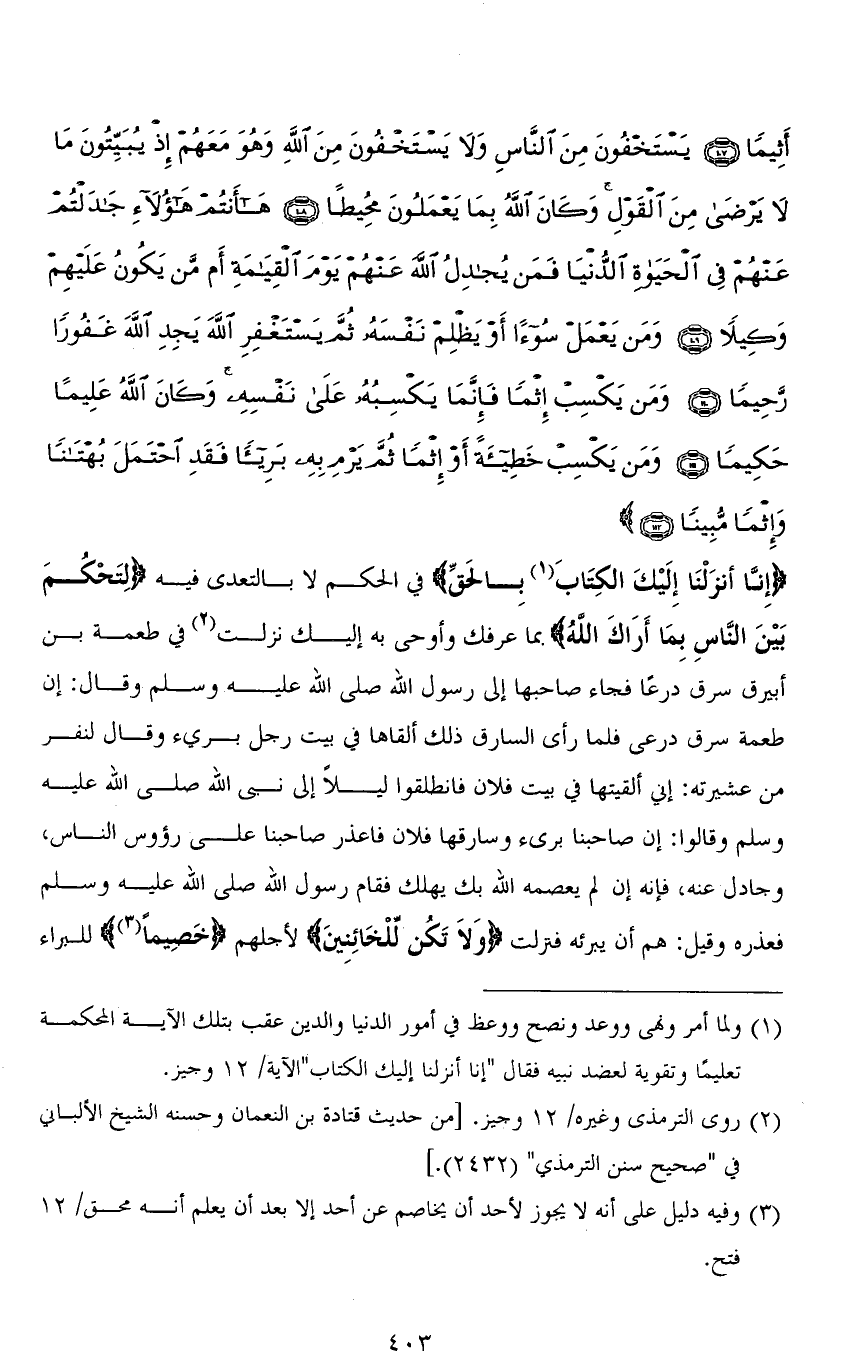 أَثِيمًا ﴿١٠٧﴾ يَسْتَخْفُونَ مِنَ ٱلنَّاسِ وَلَا يَسْتَخْفُونَ مِنَ ٱللَّهِ وَهُوَ مَعَهُمْ إِذْ يُبَيِّتُونَ مَا
لَا يَرْضَىٰ مِنَ ٱلْقَوْلِ ۚ وَكَانَ ٱللَّهُ بِمَا يَعْمَلُونَ مُحِيطًا ﴿١٠٨﴾ هَـٰٓأَنتُمْ هَـٰٓؤُلَآءِ جَـٰدَلْتُمْ
عَنْهُمْ فِى ٱلْحَيَوٰةِ ٱلدُّنْيَا فَمَن يُجَـٰدِلُ ٱللَّهَ عَنْهُمْ يَوْمَ ٱلْقِيَـٰمَةِ أَم مَّن يَكُونُ عَلَيْهِمْ
وَكِيلًا ﴿١٠٩﴾ وَمَن يَعْمَلْ سُوٓءًا أَوْ يَظْلِمْ نَفْسَهُۥ ثُمَّ يَسْتَغْفِرِ ٱللَّهَ يَجِدِ ٱللَّهَ غَفُورًا
رَّحِيمًا ﴿١١٠﴾ وَمَن يَكْسِبْ إِثْمًا فَإِنَّمَا يَكْسِبُهُۥ عَلَىٰ نَفْسِهِۦ ۚ وَكَانَ ٱللَّهُ عَلِيمًا
حَكِيمًا ﴿١١١﴾ وَمَن يَكْسِبْ خَطِيٓـَٔةً أَوْ إِثْمًا ثُمَّ يَرْمِ بِهِۦ بَرِيٓـًٔا فَقَدِ ٱحْتَمَلَ بُهْتَـٰنًا
وَإِثْمًا مُّبِينًا ﴿١١٢﴾ ﴾
﴿إِنَّا أَنزَلْنَا إِلَيْكَ الكِتَابَ(١) بِالحَقِّ﴾ في الحكم لا بالتعدى فيه ﴿لِتَحْكُمَ
بَيْنَ النَّاسِ بِمَا أَرَاكَ اللَّهُ﴾ بما عرفك وأوحى به إليك نزلت(٢) في طعمة بن
أبيرق سرق درعًا فجاء صاحبها إلى رسول الله صلى الله عليه وسلم وقال: إن
طعمة سرق درعى فلما رأى السارق ذلك ألقاها في بيت رجل بريء وقال لنفر
من عشيرته: إني ألقيتها في بيت فلان فانطلقوا ليلاً إلى نبى الله صلى الله عليه
وسلم وقالوا: إن صاحبنا برىء وسارقها فلان فاعذر صاحبنا على رؤوس الناس،
وجادل عنه، فإنه إن لم يعصمه الله بك يهلك فقام رسول الله صلى الله عليه وسلم
فعذره وقيل: هم أن يبرئه فنزلت ﴿وَلاَ تَكُن لِّلْخَائِنِينَ﴾ لأجلهم ﴿خَصِيماً(٣)﴾ للبراء
(١) ولما أمر ونهى ووعد ونصح ووعظ في أمور الدنيا والدين عقب بتلك الآية المحكمة
تعليمًا وتقوية لعضد نبيه فقال "إنا أنزلنا إليك الكتاب"الآية/ ١٢ وجيز.
(٢) روى الترمذى وغيره/ ١٢ وجيز. [من حديث قتادة بن النعمان وحسنه الشيخ الألباني
في "صحيح سنن الترمذي" (٢٤٣٢).]
(٣) وفيه دليل على أنه لا يجوز لأحد أن يخاصم عن أحد إلا بعد أن يعلم أنه محق/ ١٢
فتح.
٤٠٣